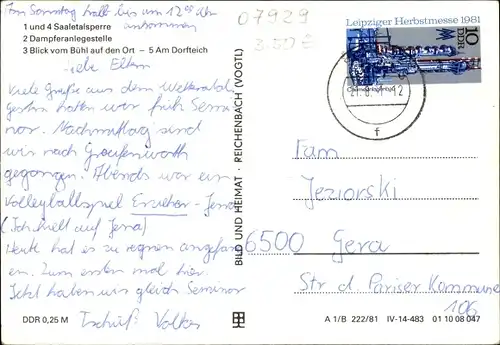 Am Sonntag halt bis um 12 00 Uhr
ankommen
1 und 4 Saaletalsperre
2 Dampferanlegestelle
3 Blick vom Bühl auf den Ort – 5 Am Dorfteich
Liebe Eltern
Viele Grüße aus dem Wetteratal
gestern hatten wir früh Semi
nar. Nachmittag sind
wir nach Gräfenwarth
gegangen. Abends war ein
Volleyballspiel Erzieher - Jena
(Ich hielt auf Jena)
Heute hat es zu regnen angefang
en. Zum ersten mal hier.
Jetzt haben wir gleich Seminar
Tschüß Volker
DDR 0,25 M
BILD UND HEIMAT · REICHENBACH (VOGTL)
07929
3.50 €
Leipziger Herbstmesse 1981
10 DDR
f
Fam
Jeziorski
6500 Gera
Str d Pariser Kommune
106
A 1/B 222/81 IV-14-483 01 10 08 047